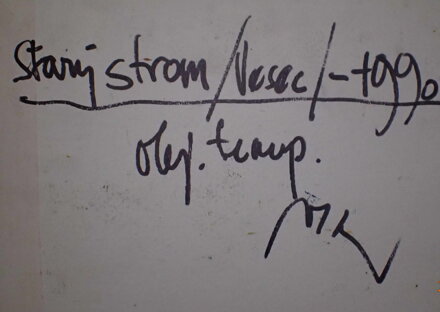 Starý strom /Vesec/ - 1990
olej. temp.